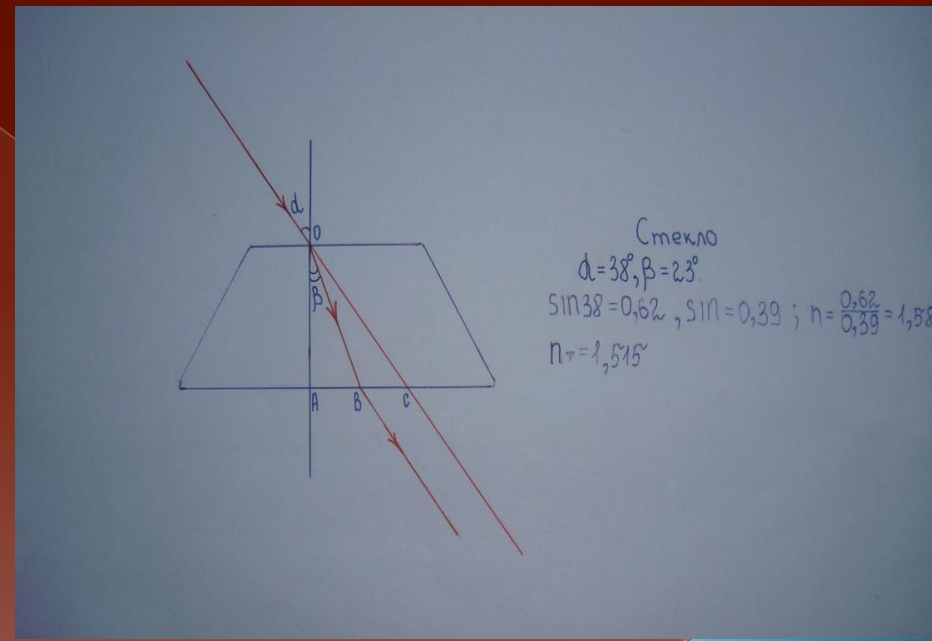 α
O
β
A B C
Стекло
α=38°, β=23°.
sin38=0,62, sin=0,39; n=0,62/0,39=1,58
nт=1,515